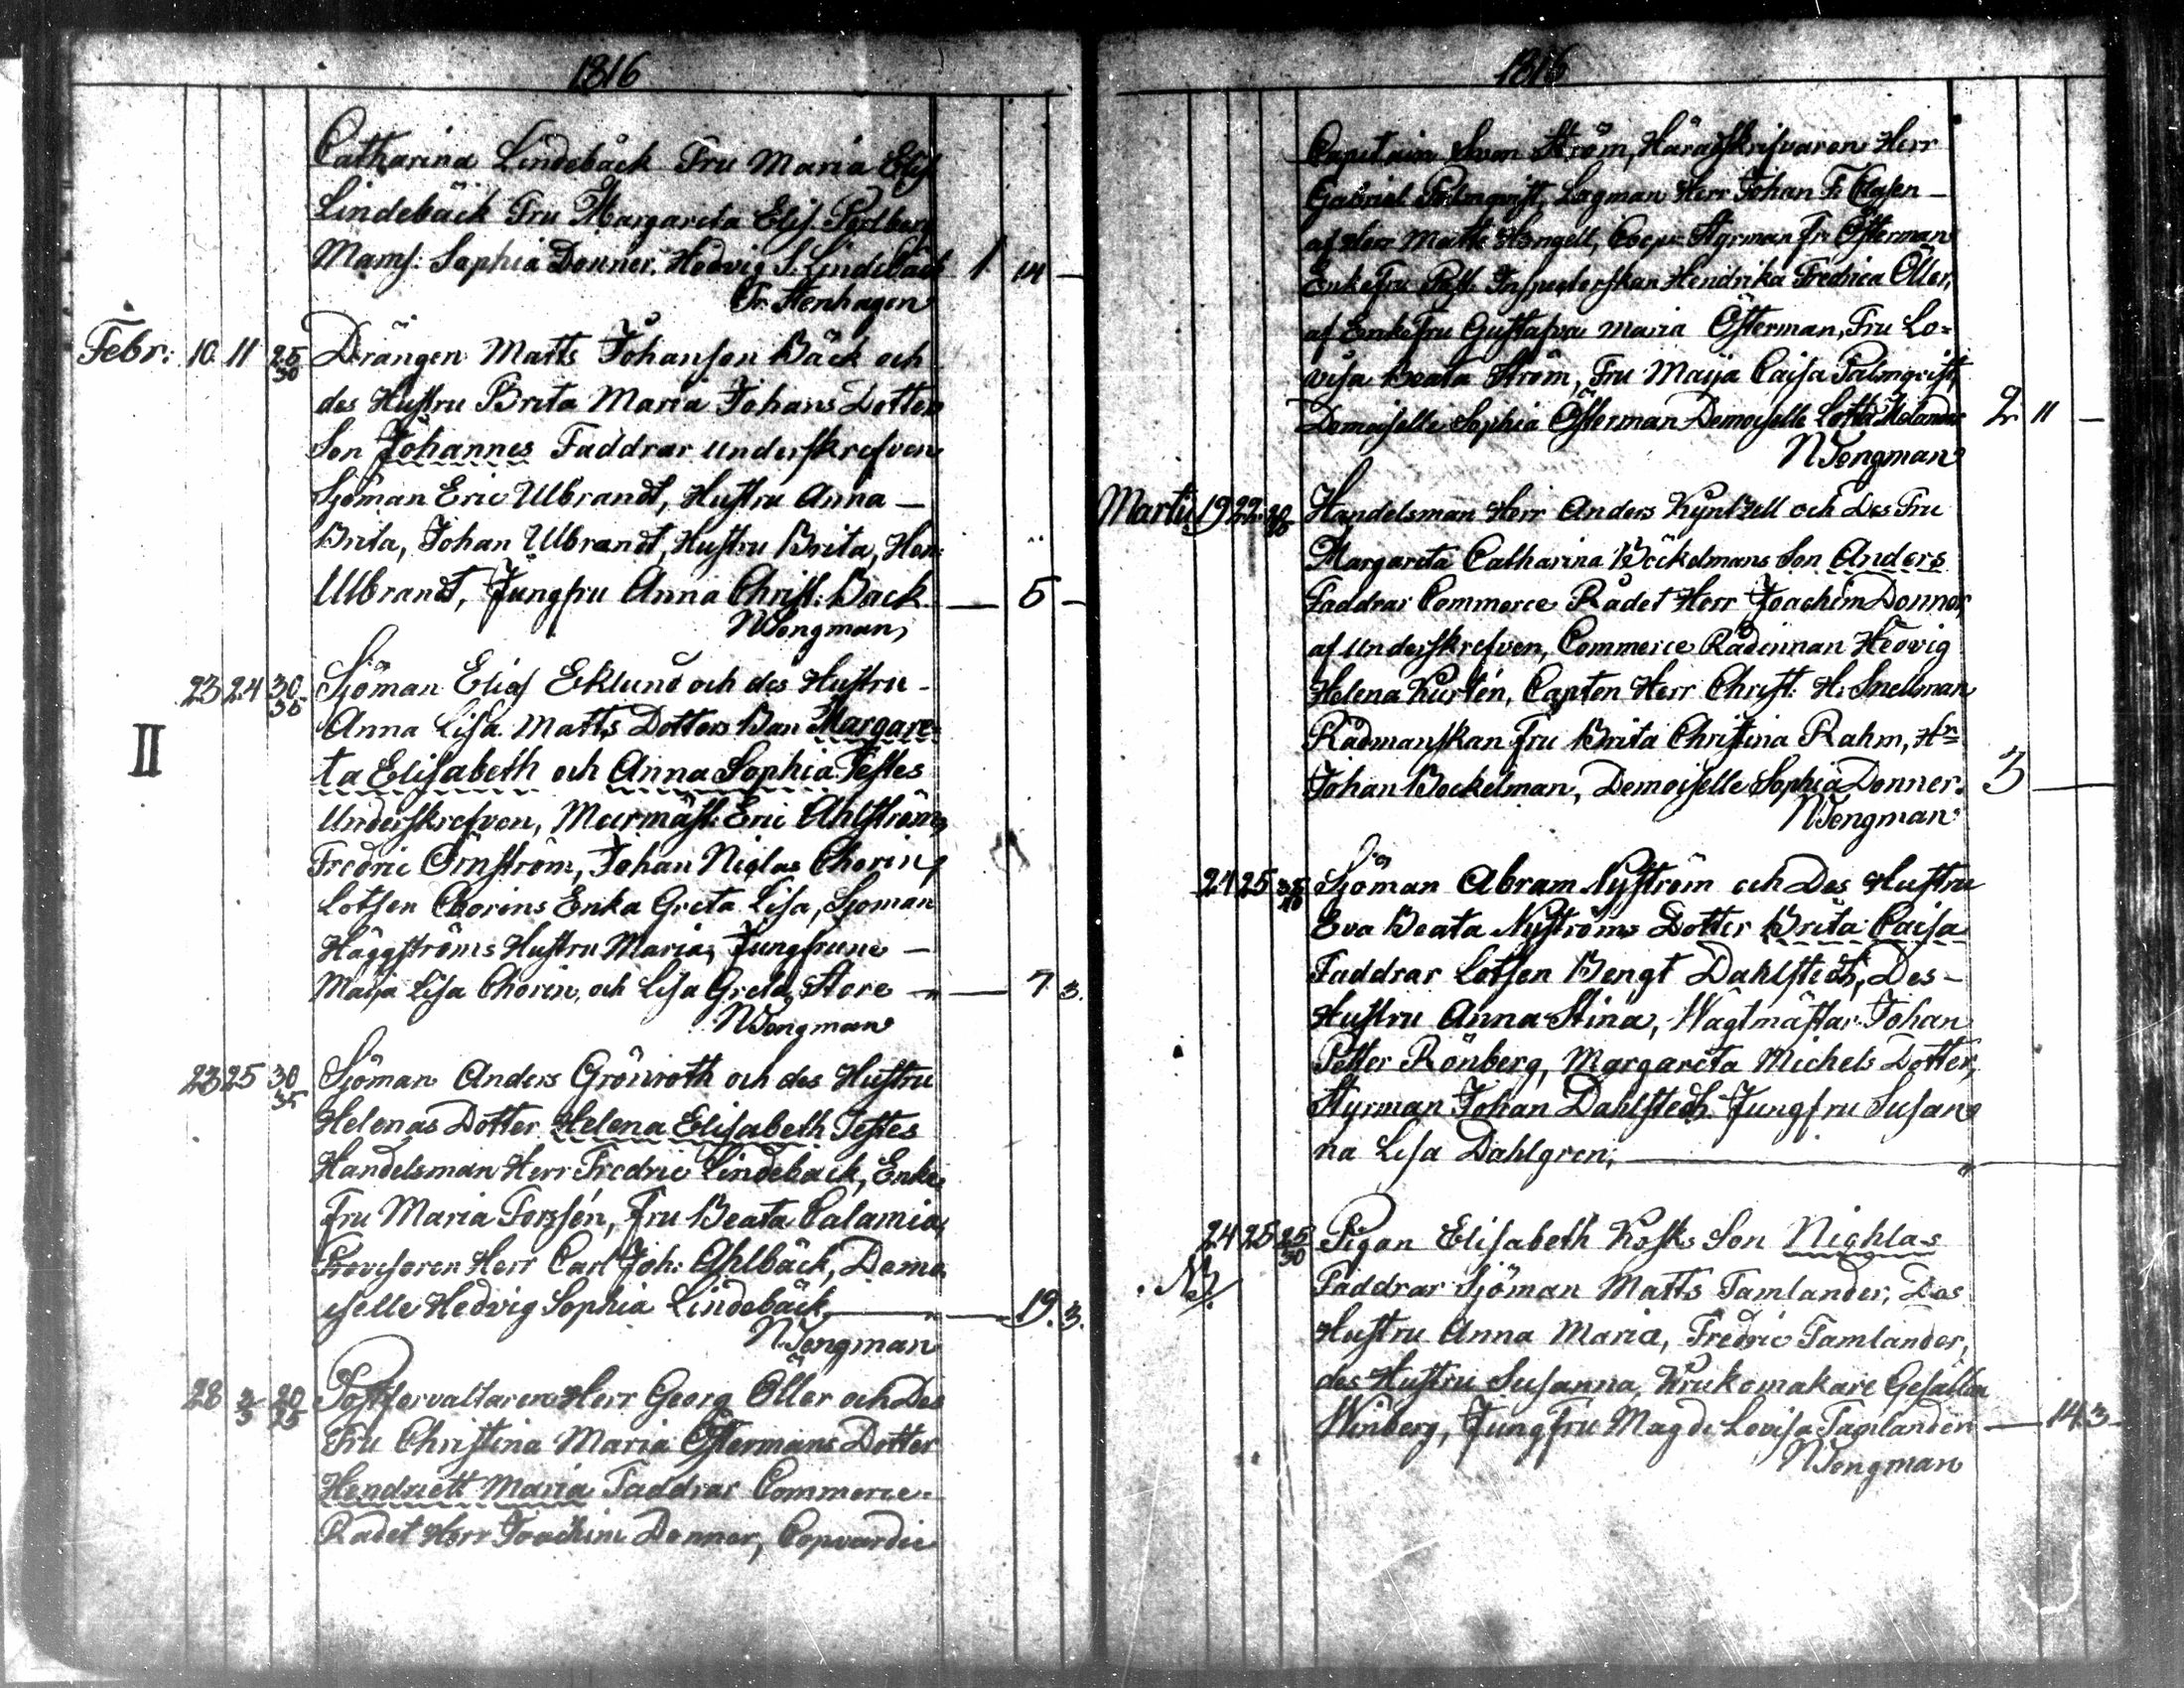 1816
Catharina Lindebäck Fru Maria Elis
Lindebäck Fru Margareta Elis.
Mams: Sophia Donner, Hedvig S. Lindebäck 1 14 —
Fr. Stenhagen
Febr: 10 11 25/30 Drängen Matts Johanson Bäck och
des Hustru Brita Maria Johans Dotter
Son Johannes Faddrar underskrefven
Sjöman Eric Ulbrandt, Hustru Anna —
Brita, Johan Ulbrandt, Hustru Brita, Hen:
Ulbrandt, Jungfru Anna Christ: Back — 5 —
NTengman
23 24 30/35 Sjöman Elias Eklund och des Hustru
II
Anna Lisa Matts Dotters Barn Margare=
ta Elisabeth och Anna Sophia Testes
Underskrefven, Murmäst: Eric Ahlström,
Fredric Örnström, Johan Niclas Chorin,
Lotsen Chorins Enka Greta Lisa, Sjöman
Häggströms Hustru Maria, Jungfrune —
Maja Lisa Chorin, och Lisa Greta Store — 7 3.
NTengman
23 25 30/35 Sjöman Anders Grönroth och des Hustru
Helenas Dotter Helena Elisabeth Testes
Handelsman Herr Fredric Lindeback, Enke
Fru Maria Forssén, Fru Beata Calamia,
Provisoren Herr Carl Joh: Ahlbäck, Demo
iselle Hedvig Sophia Lindebäck — 19. 3.
NTengman
28 2/3 20/25 Postförvaltaren Herr Georg Öller och Des
Fru Christina Maria Östermans Dotter
Hendriett Maria Faddrar Commerce=
Radet Herr Joachim Donner, Copvardie
1816
Capitain Sven Ström, Häradskrifvaren Herr
Gabriel Palmqvist, Lagman Herr Johan F. Clasen —
af Herr Matts Hongell, Coopv: Styrman Fr: Österman
Enkefru Post Inspectorskan Hendrika Fredrica Öller,
af Enke Fru Gustafva Maria Österman, Fru Lo=
visa Beata Ström, Fru Maija Caisa Palmqvist,
Demoiselle Sophia Österman Demoiselle Lotta Melander 2 11 —
NTengman
Martii 19 22 Handelsman Herr Anders Kyntzell och Des Fru
Margareta Catharina Böckelmans Son Anders
Faddrar Commerce Rådet Herr Joachim Donner,
af underskrefven, Commerce Rådinnan Hedvig
Helena Kurtén, Capten Herr Christ: H: Snellman
Rådmanskan Fru Brita Christina Rahm, Hr
Johan Bockelman, Demoiselle Sophia Donner. 3 —
NTengman
24 25 35/40 Sjöman Abram Nyström och Des Hustru
Eva Beata Nyströms Dotter Brita Caisa
Faddrar Lotsen Bengt Dahlstedt, Des —
Hustru Anna Stina, Wägtmästar Johan
Petter Rönberg, Margareta Michels Dotter,
Styrman Johan Dahlstedt. Jungfru Susan=
na Lisa Dahlgren;
24 25 25/30 Pigan Elisabeth Kosks Son Nichlas
NB. Faddrar Sjöman Matts Tamlander, Des
Hustru Anna Maria, Fredric Tamlander,
des Hustru Susanna, Krukomakare Gesällen
Winberg, Jungfru Magd: Lovisa Tamlander — 14 3
NTengman